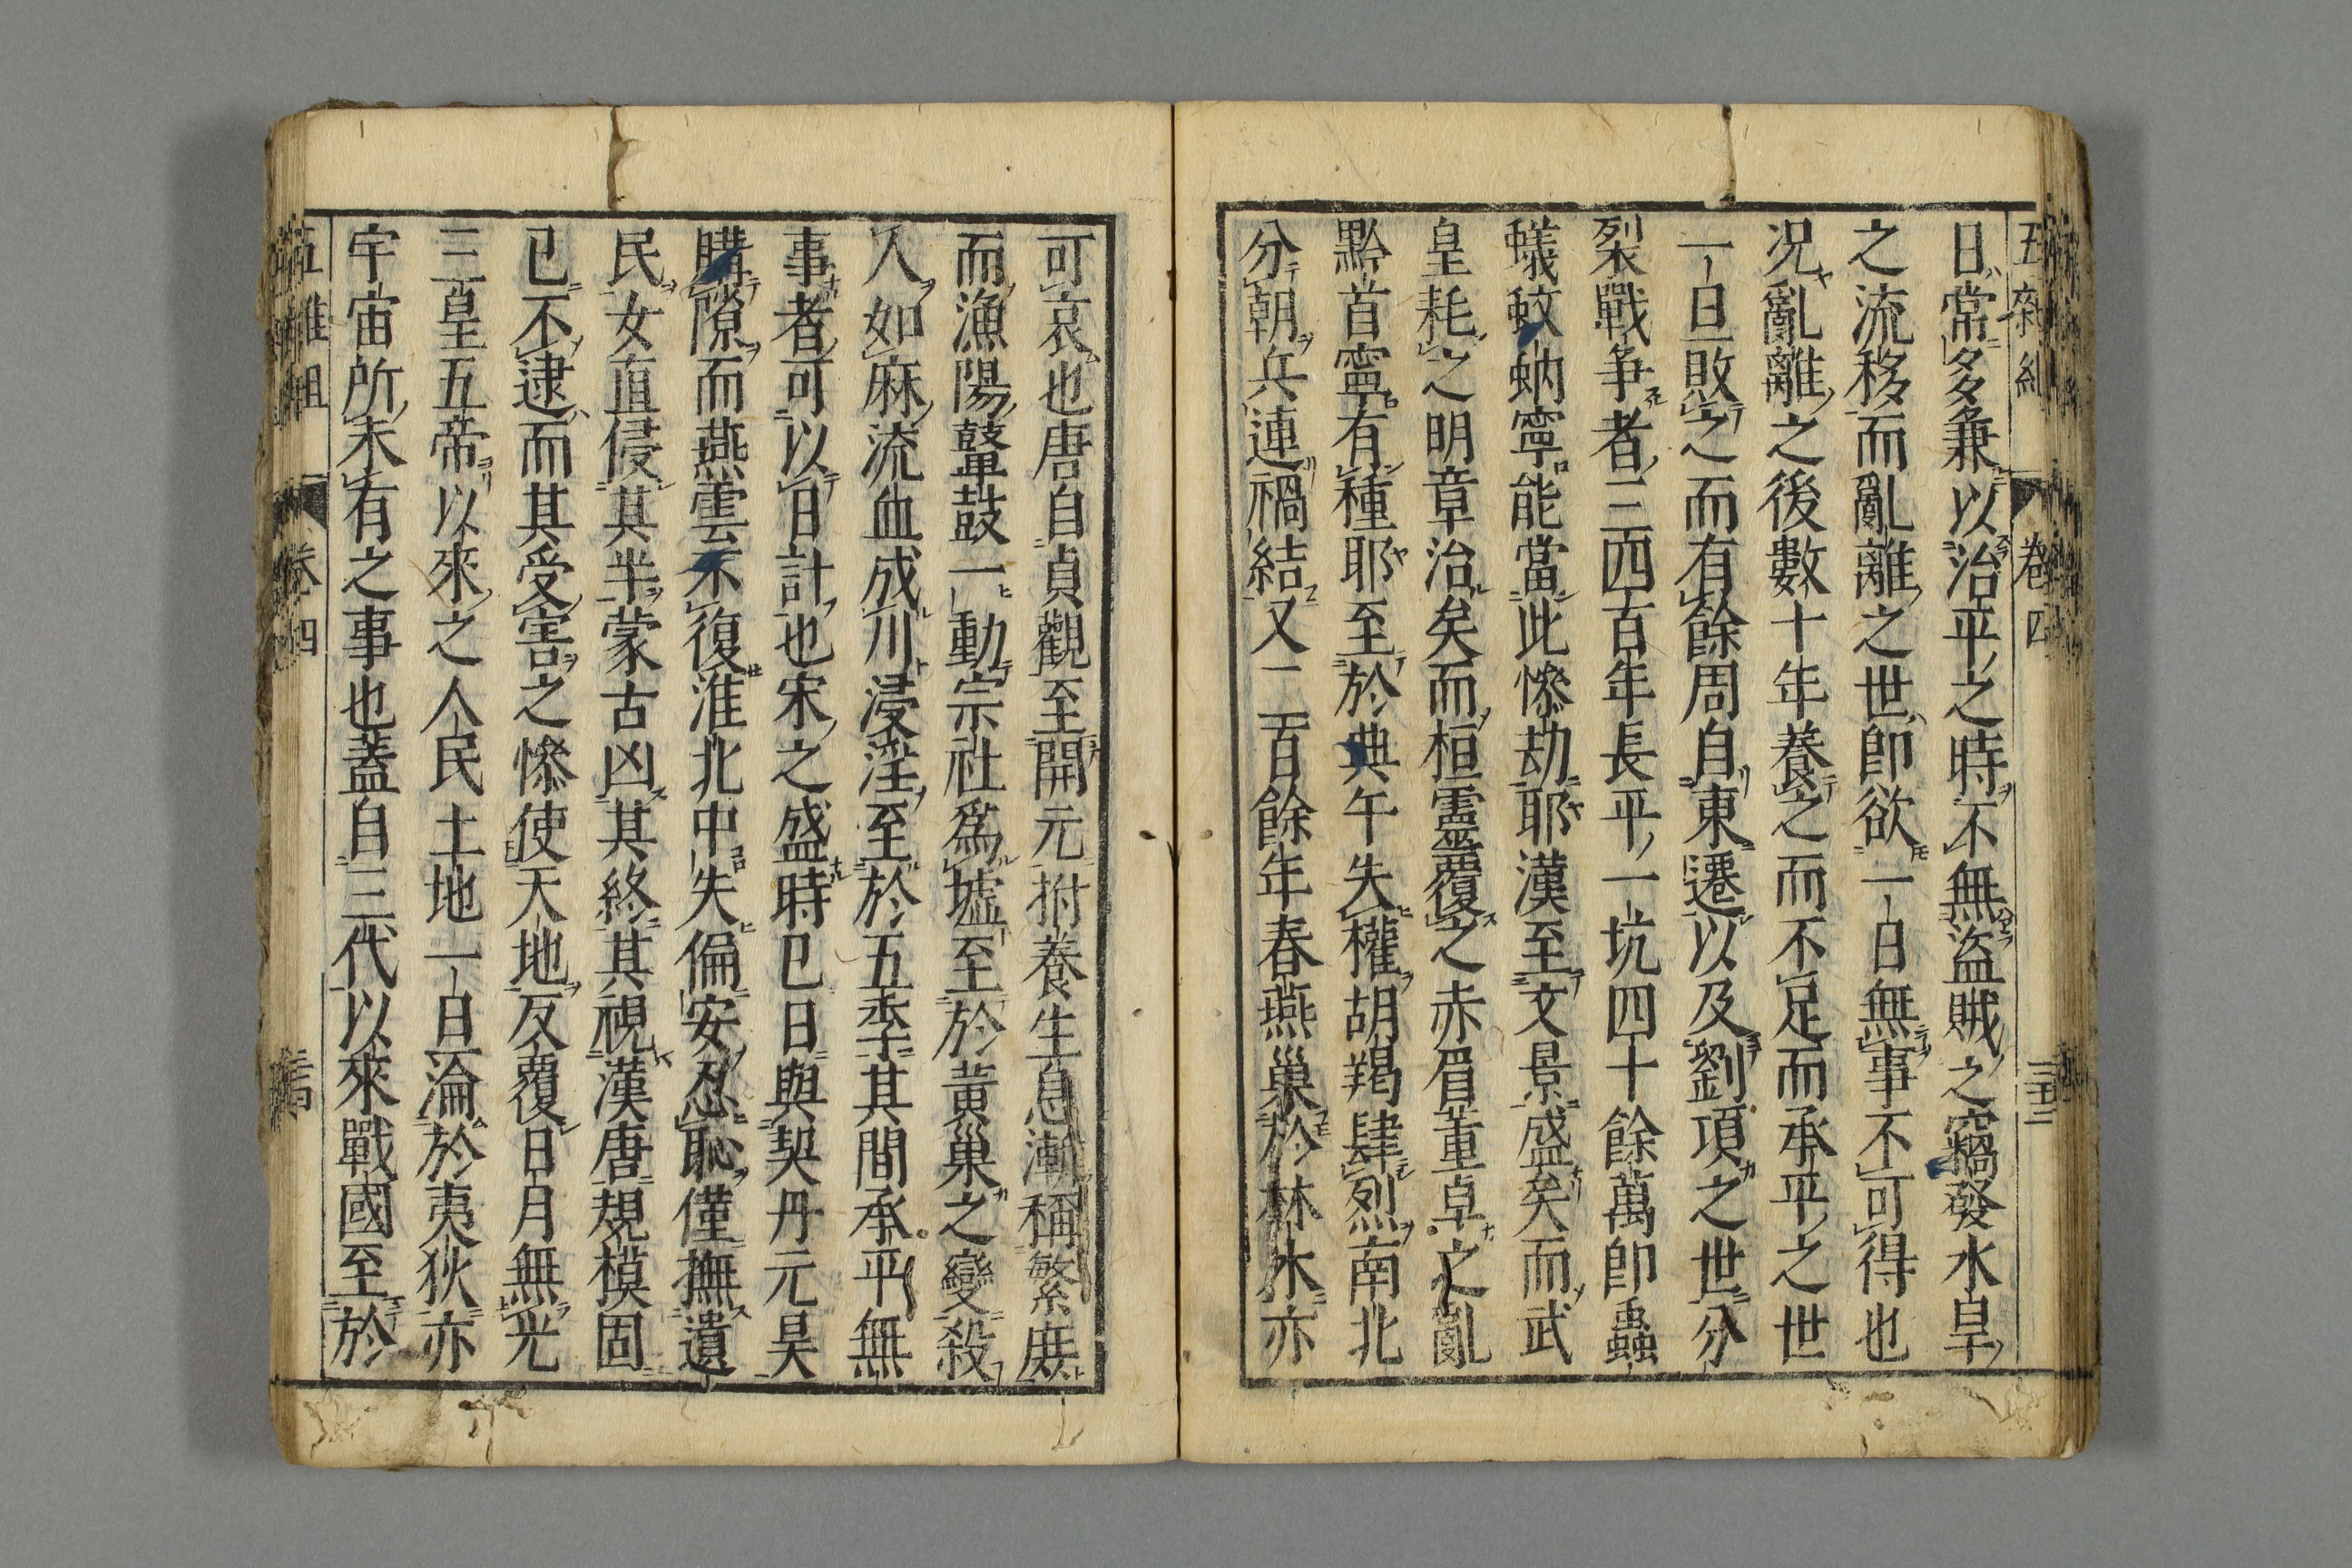 五雜組 卷四 三十三
日常多兼以治平之時不無盜賊之竊發水旱
之流移而亂離之世卽欲一日無事不可得也
况亂離之後數十年養之而不足而承平之世
一旦敗之而有餘周自東遷以及劉項之世分
裂戰争者三四百年長平一坑四十餘萬卽蟲
蟻蚊蚋寧能當此慘劫耶漢至文景盛矣而武
皇耗之明章治矣而桓靈覆之赤眉董卓之亂
黔首寧有種耶至於典午失權胡羯肆烈南北
分朝兵連禍結又二百餘年春燕巢於林木亦
可哀也唐自貞觀至開元拊養生息漸稱繁庶
而漁陽鼙鼓一動宗社爲墟至於黃巢之變殺
人如麻流血成川浸淫至於五季其間承平無
事者可以日計也宋之盛時巳日與契丹元昊
購隙而燕雲不復淮北中失偏安忍恥僅撫遺
民女直侵其半蒙古凶其終其視漢唐規模固
已不逮而其受害之慘使天地反覆日月無光
三皇五帝以來之人民土地一日淪於夷狄亦
宇宙所未有之事也蓋自三代以來戰國至於
五雜組 卷四